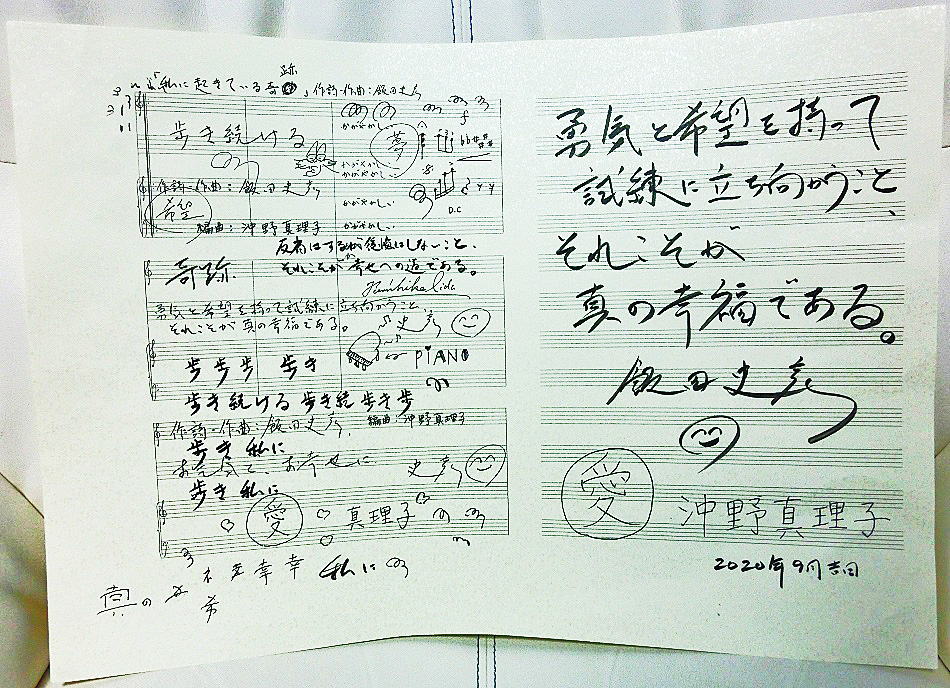 「私に起きている奇跡」作詞・作曲:飯田史彦
歩き続ける
かがやかし
夢
かがやかし
かがやかし
作詞・作曲:飯田史彦
かがやかし
希望
D.C
編曲:沖野真理子
かがやかし
反省はするが後悔はしないこと、
奇跡
それこそが幸せへの道である。
Fumihiko Iida
勇気と希望を持って試練に立ち向かうこと
それこそが真の幸福である。
史彦
歩歩歩 歩き
PiANO
歩き続ける 歩き続 歩き歩
作詞・作曲:飯田史彦 編曲:沖野真理子
歩き 私に
お元気で、お幸せに
史彦
歩き 私に
愛
真理子
幸幸 私に
真の
希
勇気と希望を持って
試練に立ち向かうこと、
それこそが
真の幸福である。
飯田史彦
愛
沖野真理子
2020年9月吉日